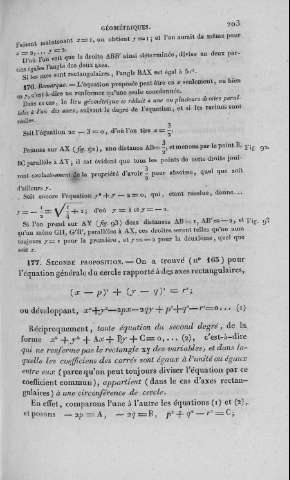 GÉOMÉTRIQUES. 203
Faisant maintenant x=1, on obtient y=1; et l'on aurait de même pour
x=2,... y=2.
D'où l'on voit que la droite ABB' ainsi déterminée, divise en deux par-
ties égales l'angle des deux axes.
Si les axes sont rectangulaires, l'angle BAX est égal à
176. Remarque. — L'équation proposée peut être en x seulement, ou bien
en y, c'est-à-dire ne renfermer qu'une seule coordonnée.
Dans ce cas, le lieu géométrique se réduit à une ou plusieurs droites paral-
lèles à l'un des axes, suivant le degré de l'équation, et si les racines sont
réelles.
Soit l'équation 2x — 3 = 0, d'où l'on tire x = 3/2.
Prenons sur AX (fig. 92), une distance AB = 3/2, et menons par le point B, Fig. 92.
BC parallèle à AY; il est évident que tous les points de cette droite joui-
ront exclusivement de la propriété d'avoir 3/2 pour abscisse, quel que soit
d'ailleurs y.
Soit encore l'équation y² + y — 2 = 0, qui, étant résolue, donne...
y = — 1/2 ± √(1/4 + 2; d'où y = 1 et y = — 2.
Si l'on prend sur AY (fig. 93) deux distances AB = 1, AB' = — 2, et Fig. 93
qu'on mène GH, G'H', parallèles à AX, ces droites seront telles qu'on aura
toujours y = 1 pour la première, et y = — 2 pour la deuxième, quel que
soit x.
177. SECONDE PROPOSITION. — On a trouvé (n° 165) pour
l'équation générale du cercle rapporté à des axes rectangulaires,
(x — p)² + (y — q)² = r²;
ou développant, x²+y²—2px—2qy + p²+q²—r²=0... (1)
Réciproquement, toute équation du second degré, de la
forme x² + y² + Ax + By + C = 0,... (2), c'est-à-dire
qui ne renferme pas le rectangle xy des variables, et dans la-
quelle les coefficiens des carrés sont égaux à l'unité ou égaux
entre eux (parce qu'on peut toujours diviser l'équation par ce
coefficient commun), appartient (dans le cas d'axes rectan-
gulaires) à une circonférence de cercle.
En effet, comparons l'une à l'autre les équations (1) et (2),
et posons — 2p = A, — 2q = B, p² + q² — r² = C;